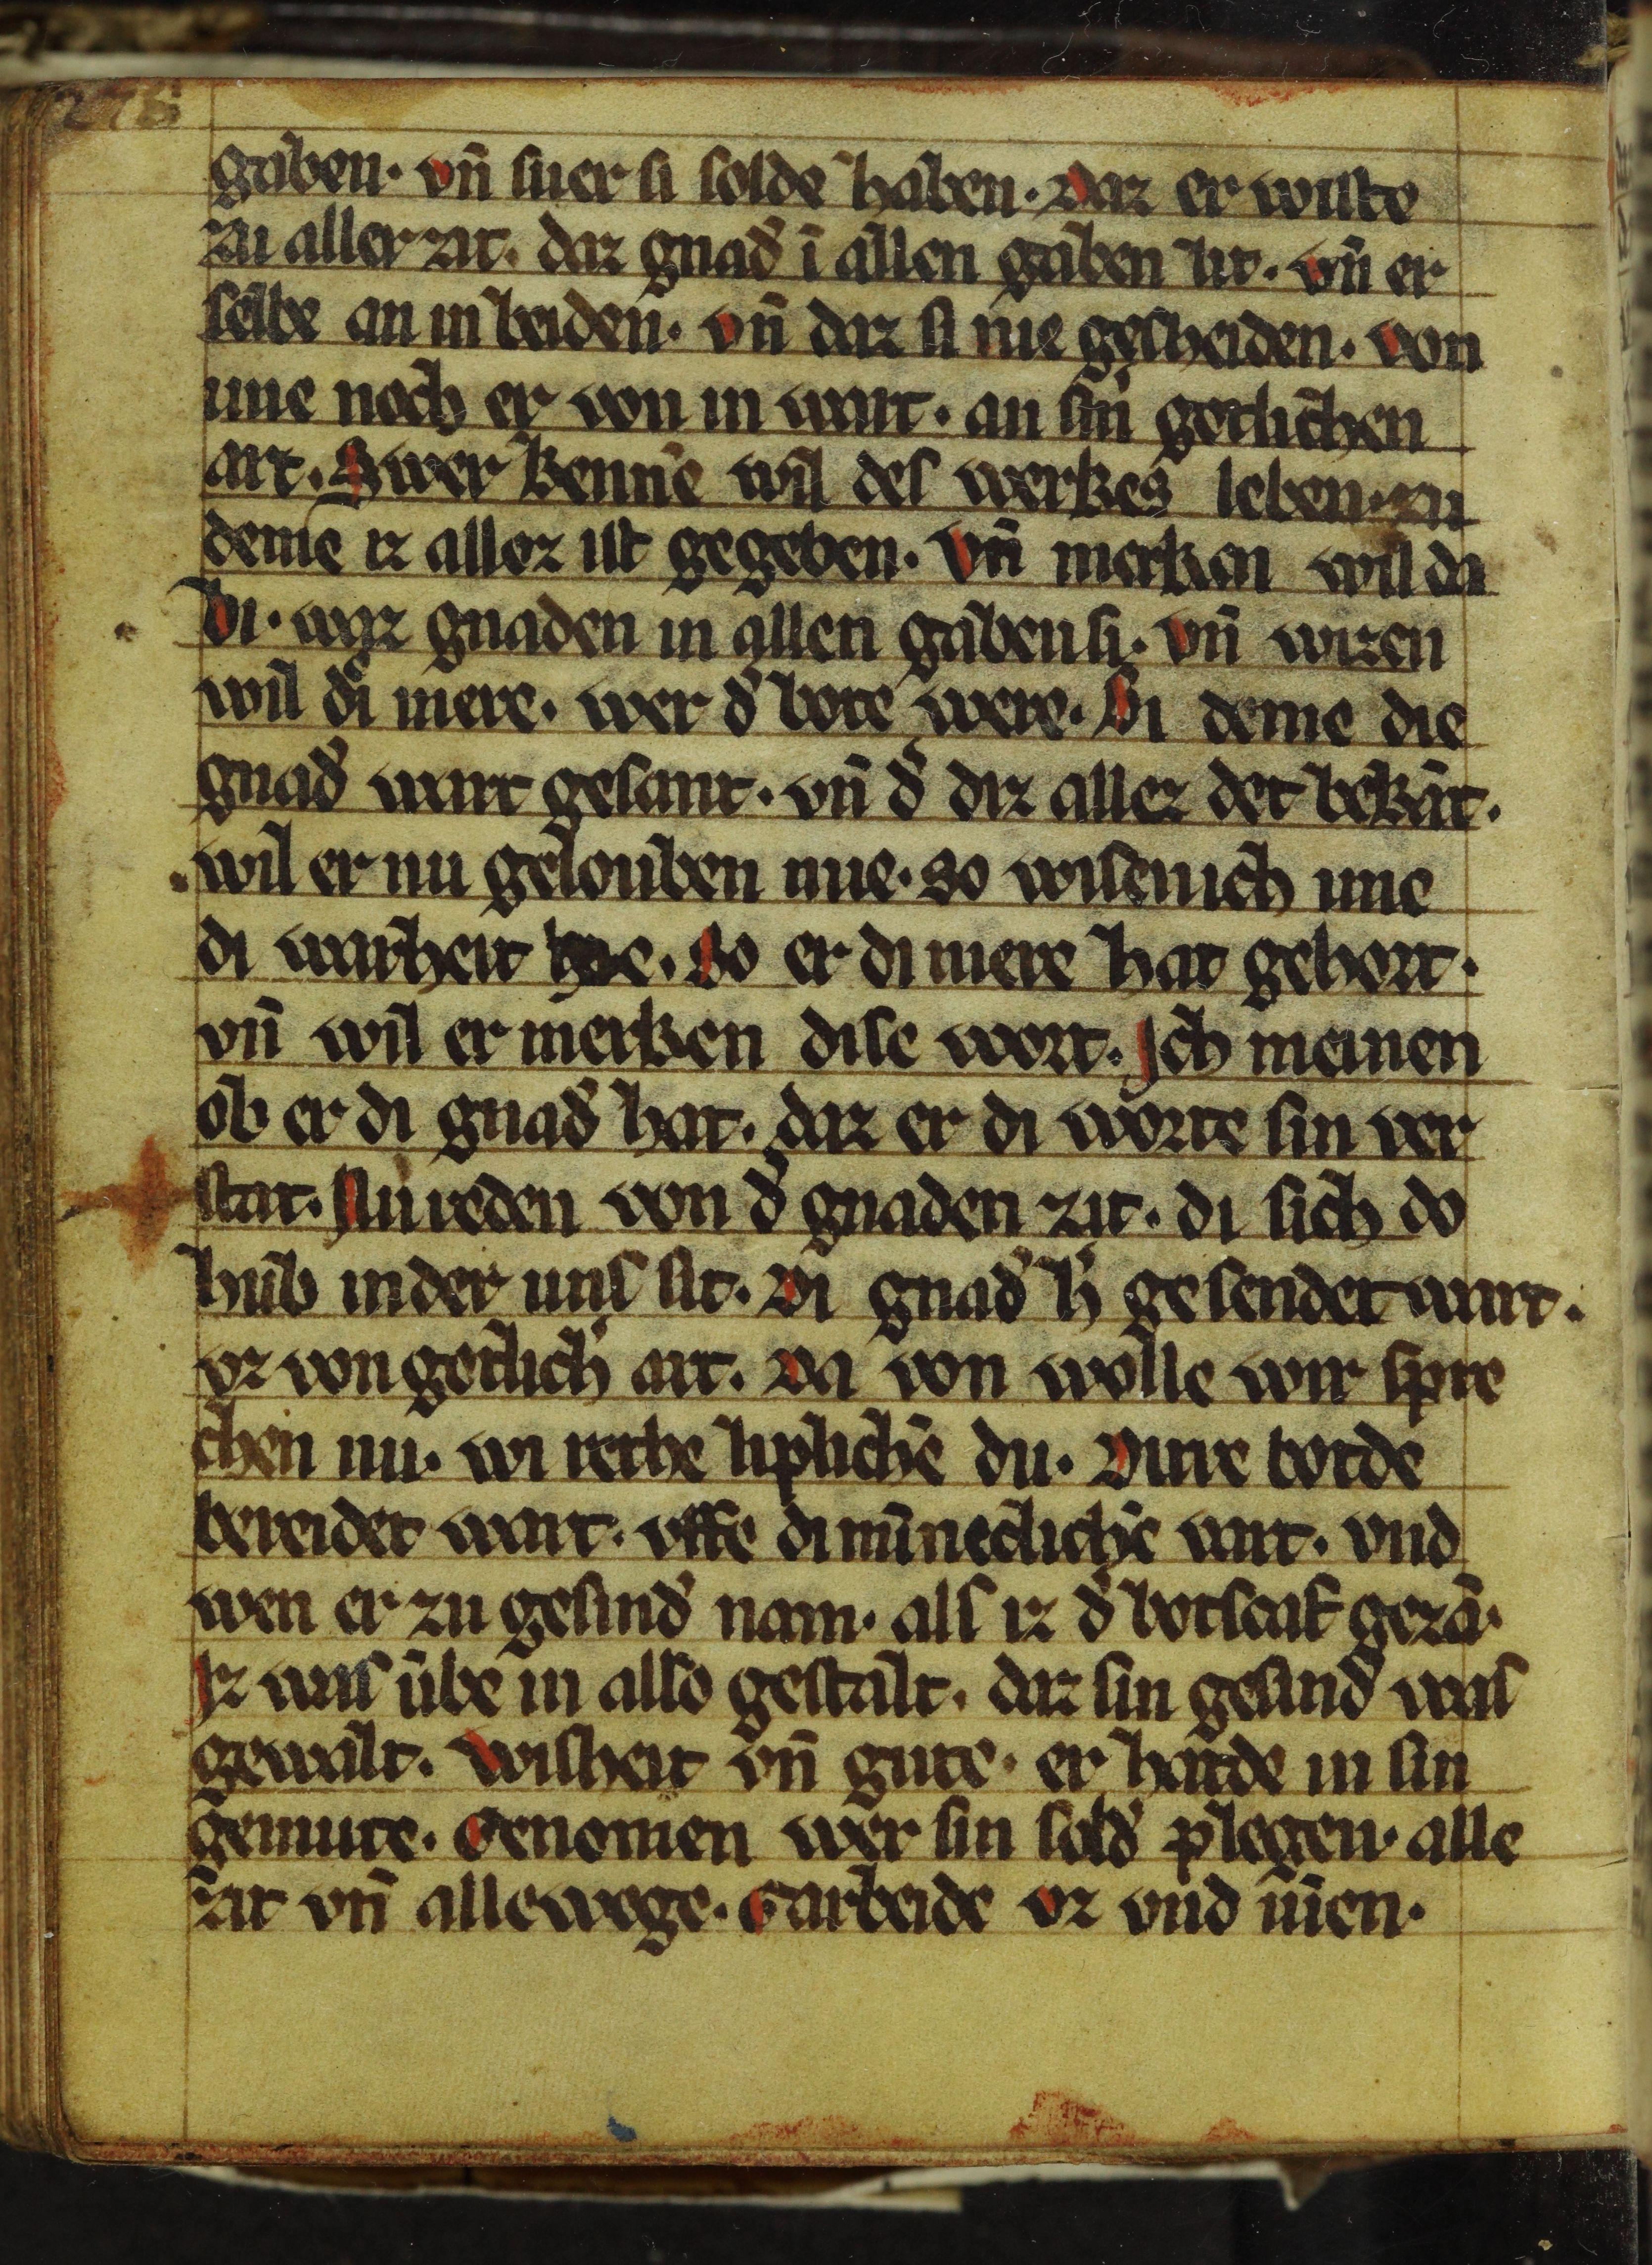 gaben. vn̄ swer si solde haben. Daz er wiste
zu aller zit. daz gnad͛ ī allen gaben lit. vn̄ er
selbe an in beiden. vn̄ daz si nie gescheiden. von
ime noch er von in wart. an sin͛ gotlichen
art. Swer kenne wil des werkes leben. zu
deme iz allez ist gegeben. Vn̄ merken wil da
bi. waz gnaden in allen gaben si. vn̄ wizen
wil di mere. wer d͛ bote were. Bi deme die
gnad͛ wart gesant. vn̄ d͛ diz allez det bekāt.
wil er nu gelouben mie. so wisen ich ime
di warheit hie. So er di mere hat gehort.
vn̄ wil er merken dise wort. Ich meinen
ob er di gnad͛ hat. daz er di worte sin ver
stat. Nu reden von d͛ gnaden zit. di sich do
hub in der uns sit. Di gnad͛ h͛ gesendet wart.
vz von gotlich͛ art. Da von wolle wir spre
chen nu. wi rethe liplichē du. Dirre botde
bereidet wart. vffe di mīneclichē vart. vnd
wen er zu gesind͛ nam. als iz d͛ botscaf gezā.
Iz was ūbe in also gestalt. daz sin gesind͛ was
gewalt. Wisheit vn̄ gute. er hatde in sin
gemute. Genomen wer sin sold͛ plegen. alle
zit vn̄ allewege. Garbeide vz vnd inen.